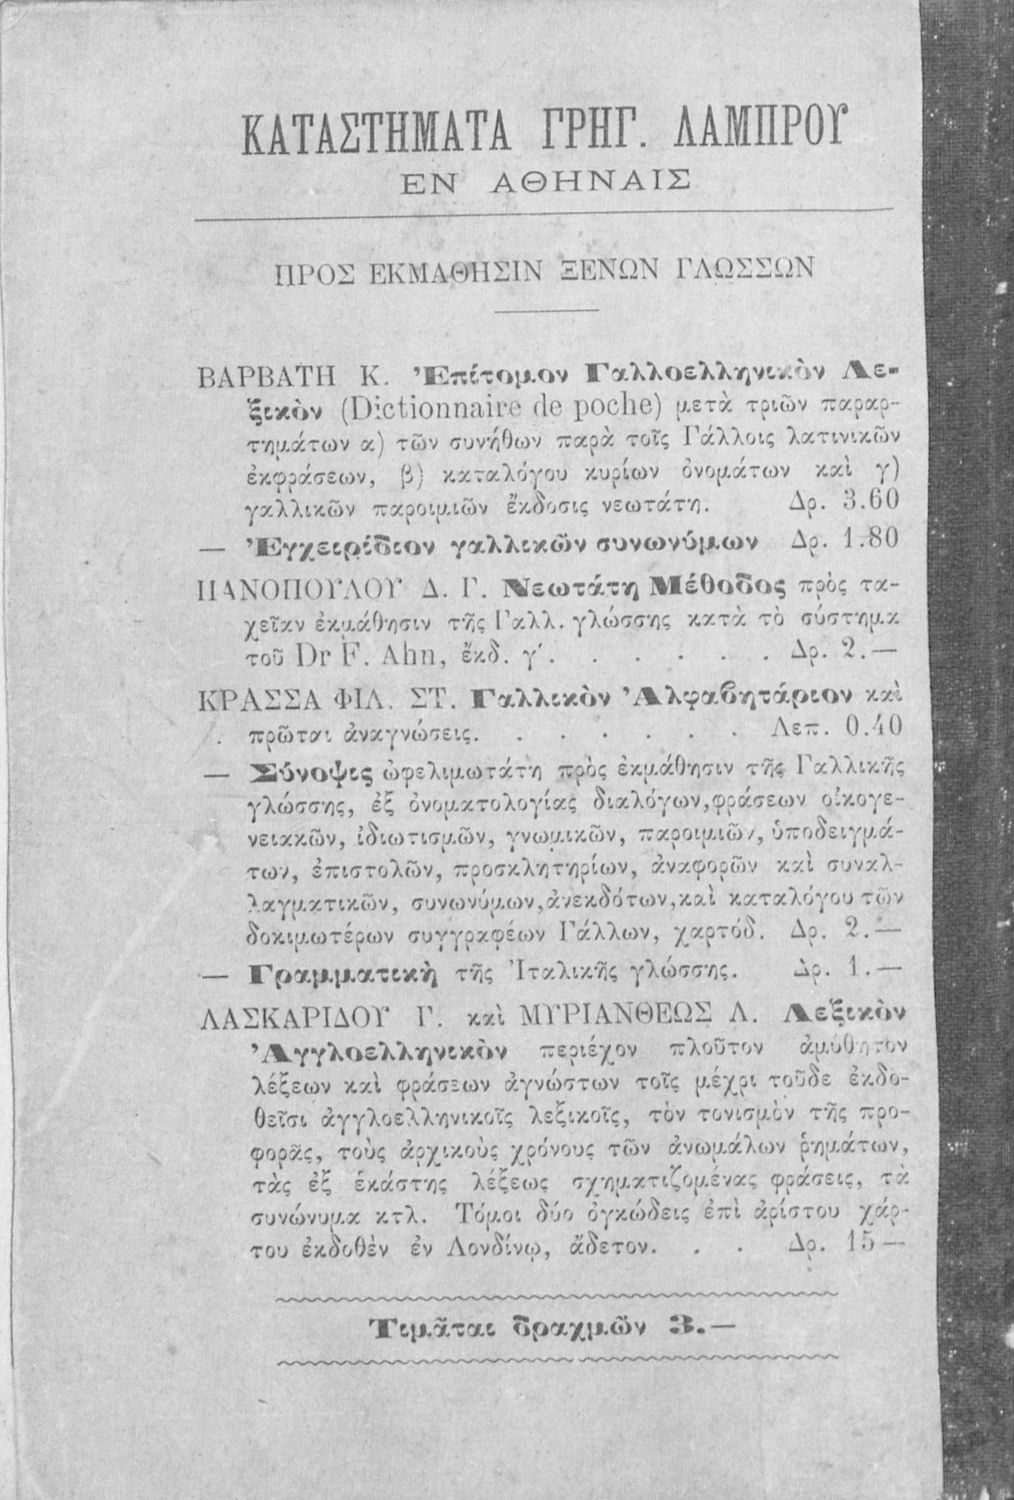 ΚΑΤΑΣΤΗΜΑΤΑ ΓΡΗΓ. ΛΑΜΠΡΟΥ
ΕΝ ΑΘΗΝΑΙΣ
ΠΡΟΣ ΕΚΜΑΘΗΣΙΝ ΞΕΝΩΝ ΓΛΩΣΣΩΝ
ΒΑΡΒΑΤΗ Κ. Ἐπίτομον Γαλλοελληνικὸν Λε-
ξικὸν (Dictionnaire de poche) μετὰ τριῶν παραρ-
τημάτων α) τῶν συνήθων παρὰ τοῖς Γάλλοις λατινικῶν
ἐκφράσεων, β) καταλόγου κυρίων ὀνομάτων καὶ γ)
γαλλικῶν παροιμιῶν ἔκδοσις νεωτάτη. Δρ. 3.60
— Ἐγχειρίδιον γαλλικῶν συνωνύμων Δρ. 1.80
ΠΑΝΟΠΟΥΛΟΥ Δ. Γ. Νεωτάτη Μέθοδος πρὸς τα-
χεῖαν ἐκμάθησιν τῆς Γαλλ. γλώσσης κατὰ τὸ σύστημα
τοῦ Dr F. Ahn, ἔκδ. γ΄. . . . . . . Δρ. 2.—
ΚΡΑΣΣΑ ΦΙΛ. ΣΤ. Γαλλικὸν Ἀλφαβητάριον καὶ
πρῶται ἀναγνώσεις. . . . . . . Λεπ. 0.40
— Σύνοψις ὠφελιμωτάτη πρὸς ἐκμάθησιν τῆς Γαλλικῆς
γλώσσης, ἐξ ὀνοματολογίας διαλόγων, φράσεων οἰκογε-
νειακῶν, ἰδιωτισμῶν, γνωμικῶν, παροιμιῶν, ὑποδειγμά-
των, ἐπιστολῶν, προσκλητηρίων, ἀναφορῶν καὶ συναλ-
λαγματικῶν, συνωνύμων, ἀνεκδότων, καὶ καταλόγου τῶν
δοκιμωτέρων συγγραφέων Γάλλων, χαρτόδ. Δρ. 2.—
— Γραμματικὴ τῆς Ἰταλικῆς γλώσσης. Δρ. 1.—
ΛΑΣΚΑΡΙΔΟΥ Γ. καὶ ΜΥΡΙΑΝΘΕΩΣ Λ. Λεξικὸν
Ἀγγλοελληνικὸν περιέχον πλοῦτον ἀμύθητον
λέξεων καὶ φράσεων ἀγνώστων τοῖς μέχρι τοῦδε ἐκδο-
θεῖσι ἀγγλοελληνικοῖς λεξικοῖς, τὸν τονισμὸν τῆς προ-
φορᾶς, τοὺς ἀρχικοὺς χρόνους τῶν ἀνωμάλων ῥημάτων,
τὰς ἐξ ἑκάστης λέξεως σχηματιζομένας φράσεις, τὰ
συνώνυμα κτλ. Τόμοι δύο ὀγκώδεις ἐπὶ ἀρίστου χάρ-
του ἐκδοθὲν ἐν Λονδίνῳ, ἄδετον. . . . Δρ. 15—
Τιμᾶται δραχμῶν 3.—